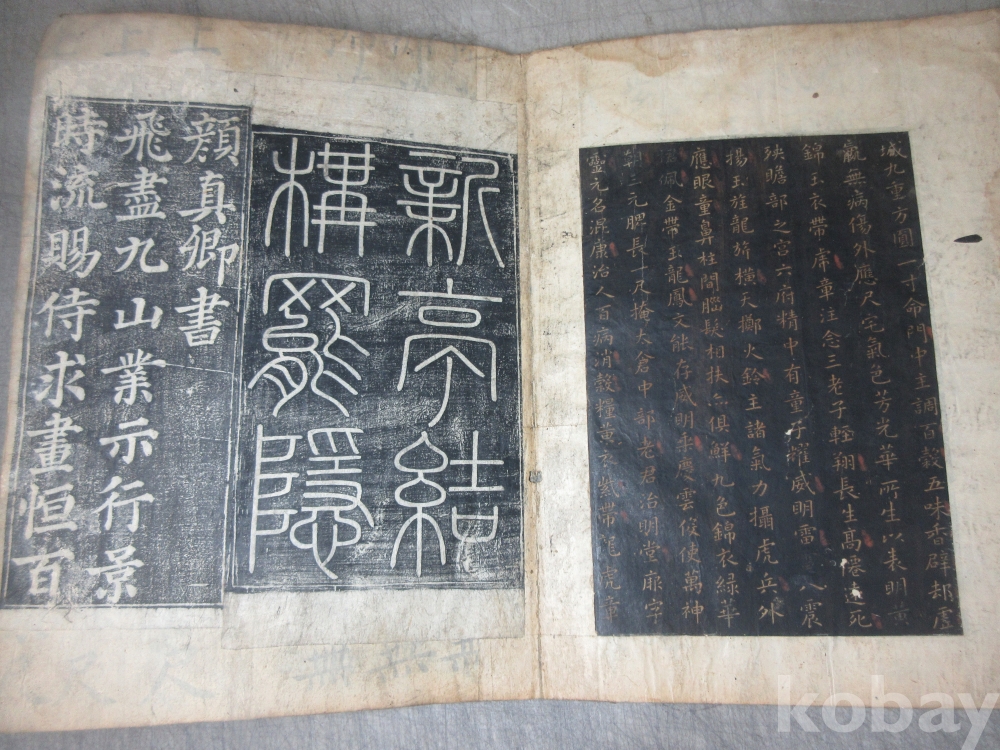 城九重方圓一寸命門中主調百穀五味香辟却虛
羸無病傷外應尺宅氣色芳光華所生以表明黃
錦玉衣帶席章注念三老子輕翔長生高死
殃贍部之宮六府精中有童子耀威明雷八震
揚玉旌龍旂橫天擲火鈴主諸氣力攝虎兵外
應眼童鼻柱間腦髮相扶亦俱鮮九色錦衣綠華
佩金帶玉龍鳳文能存威明乘慶雲役使萬神
朝三元脾長一尺掩太倉中部老君治明堂字
靈元名混康治人百病消穀糧黃衣紫帶龍虎章
新亭結
構罷隱
顏真卿書
飛盡九山業示行景
時流賜侍求畫恒百
kobay